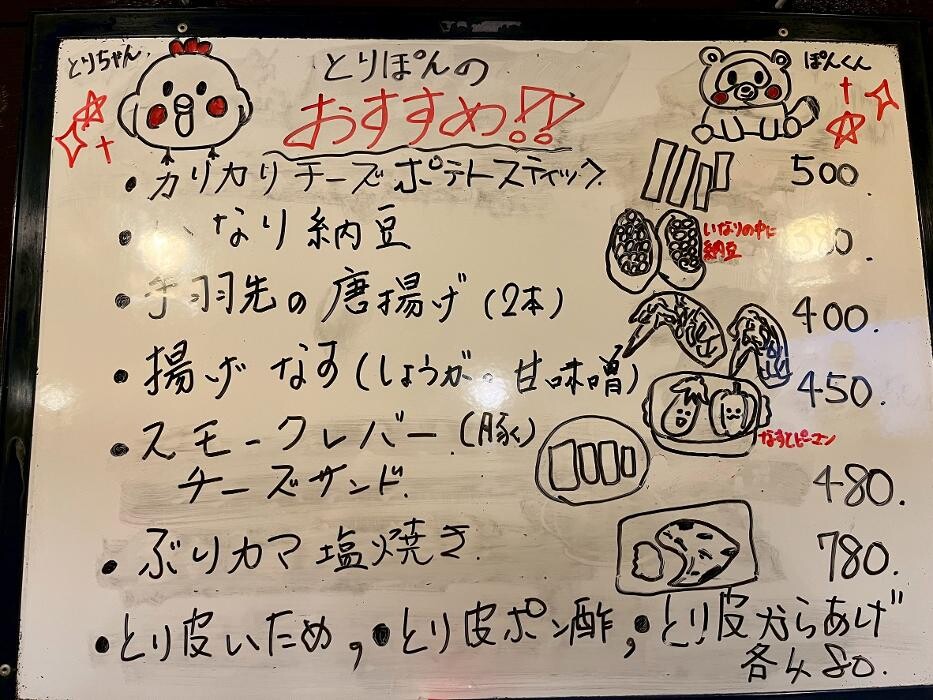 とりちゃん
とりぽんの
ぽんくん
おすすめ!!
・カリカリチーズポテトスティック 500.
・いなり納豆
いなりの中に
納豆
380.
・手羽先の唐揚げ(2本) 400.
・揚げなす(しょうが・甘味噌) 450.
なすとピーマン
・スモークレバー(豚)
チーズサンド. 480.
・ぶりカマ塩焼き 780.
・とり皮いため,・とり皮ポン酢,・とり皮からあげ
各480.